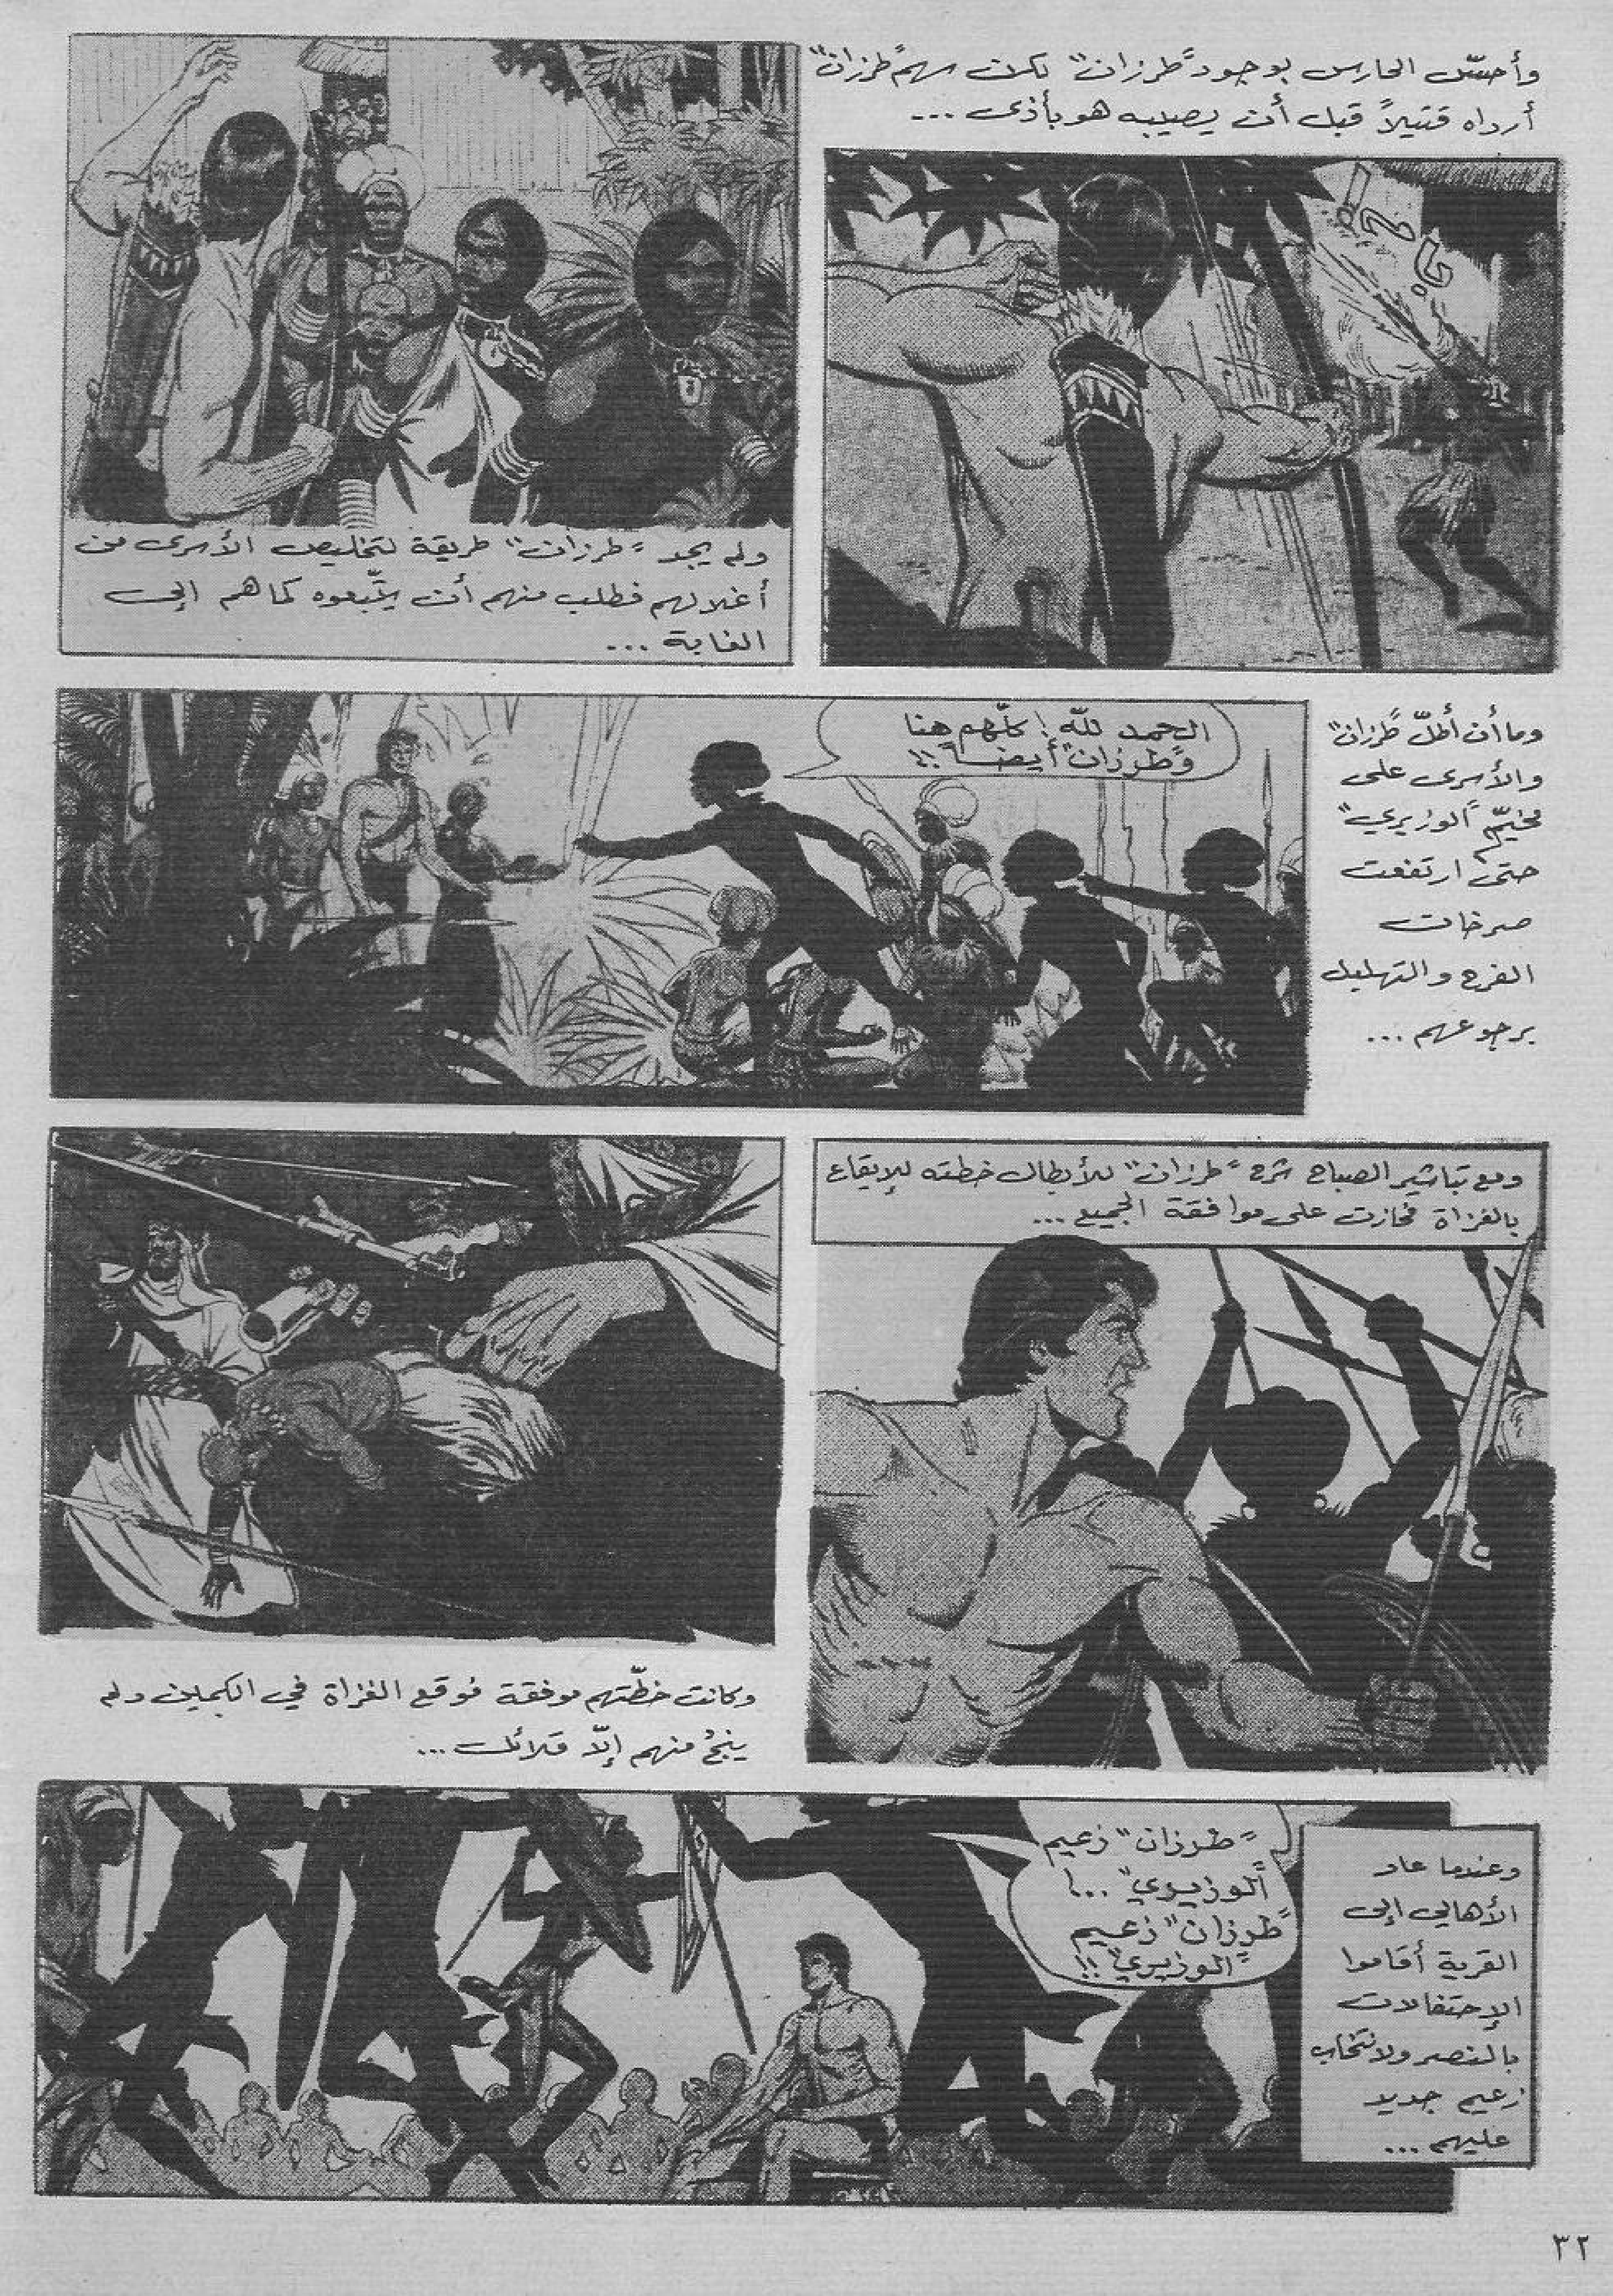 وأحسّ الحارس بوجود "طرزان" لكن سهم "طرزان"
أرداه قتيلاً قبل أن يصيبه هو بأذى ...
ولم يجد "طرزان" طريقة لتخليص الأسرى من
أغلالهم فطلب منهم أن يتّبعوه كما هم إلى
الغابة ...
وما أن أطلّ "طرزان"
والأسرى على
مخيّم "الوزيري"
حتى ارتفعت
صرخات
الفرح والتهليل
برجوعهم ...
الحمد للّه! كلّهم هنا
و"طرزان" أيضاً!!
ومع تباشير الصباح شرح "طرزان" للأبطال خطته للإيقاع
بالغزاة فحازت على موافقة الجميع ...
وكانت خطّتهم موفقة فوقع الغزاة في الكمين ولم
ينجُ منهم إلّا قلائل ...
وعندما عاد
الأهالي إلى
القرية أقاموا
الإحتفالات
بالنصر ولانتخاب
زعيم جديد
عليهم ...
"طرزان" زعيم
"الوزيري" ...!
"طرزان" زعيم
"الوزيري"!!
٣٢